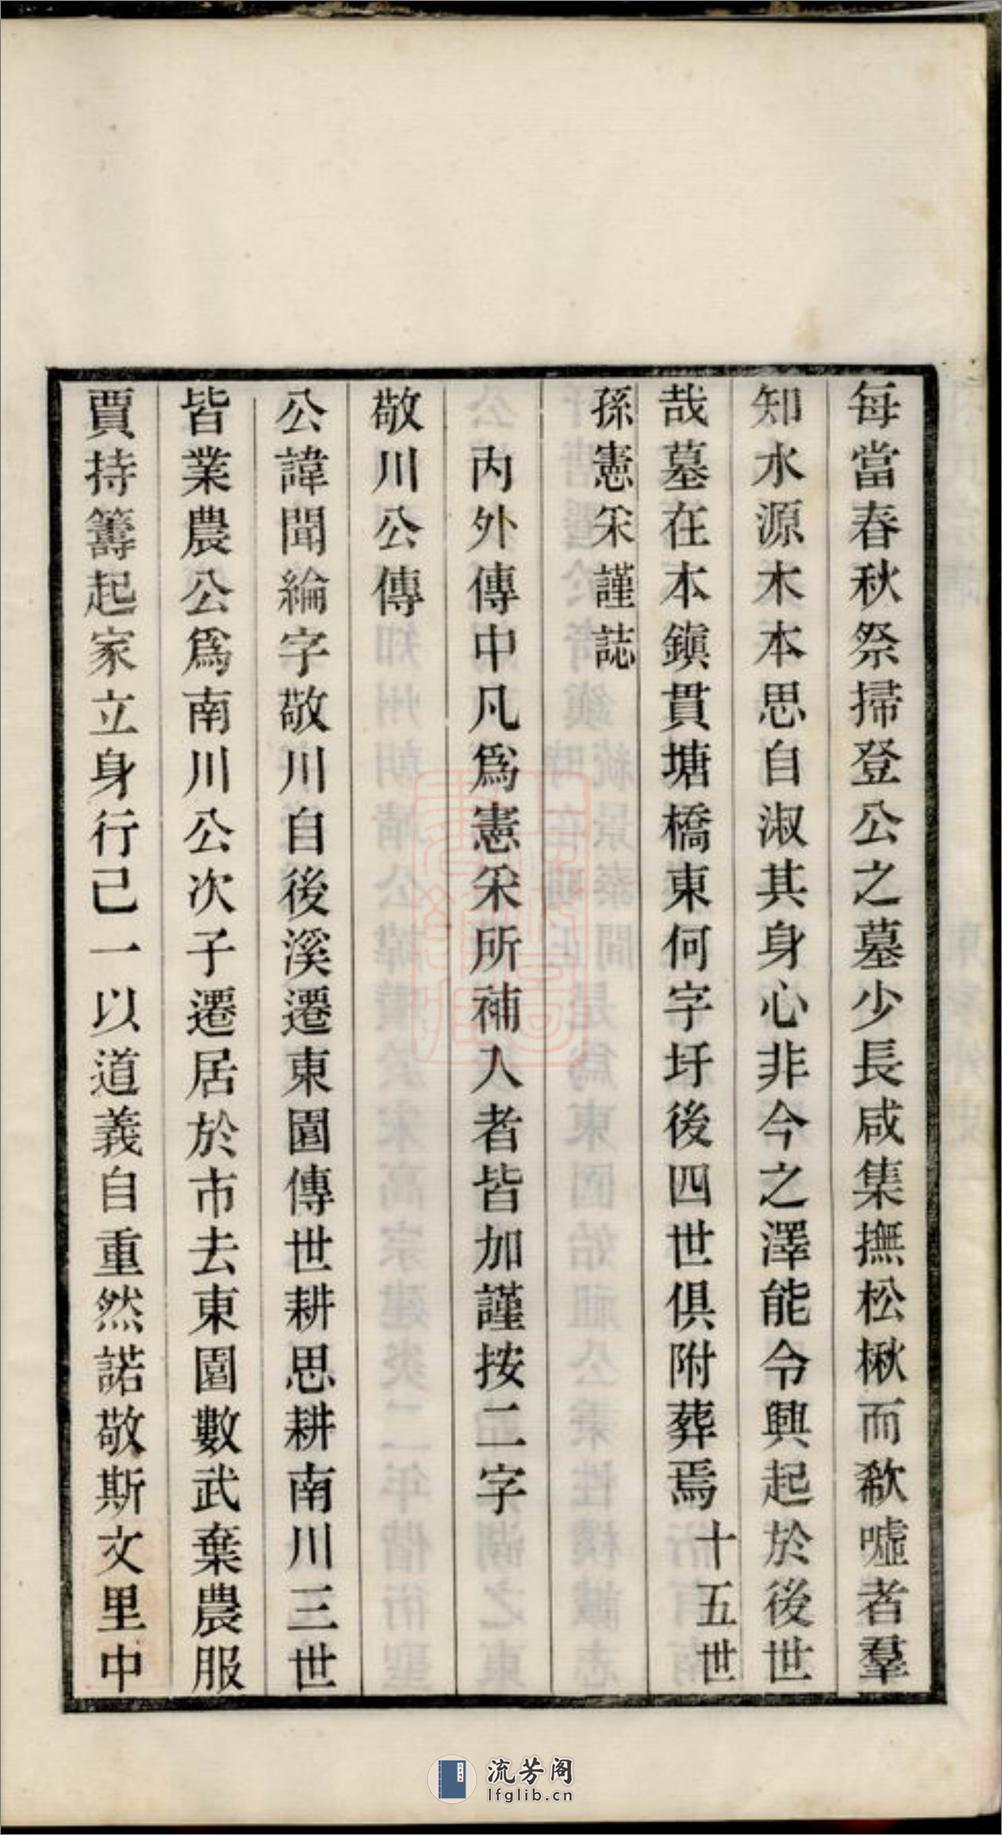 每當春秋祭掃登公之墓少長咸集撫松楸而欷噓者羣
知水源木本思自淑其身心非今之澤能令興起於後世
哉墓在本鎭貫塘橋東何字圩後四世俱附葬焉十五世
孫憲采謹誌
內外傳中凡爲憲采所補入者皆加謹按二字
敬川公傳
公諱聞綸字敬川自後溪遷東園傳世耕思耕南川三世
皆業農公爲南川公次子遷居於市去東園數武棄農服
賈持籌起家立身行己一以道義自重然諾敬斯文里中
流芳阁
lfglib.cn